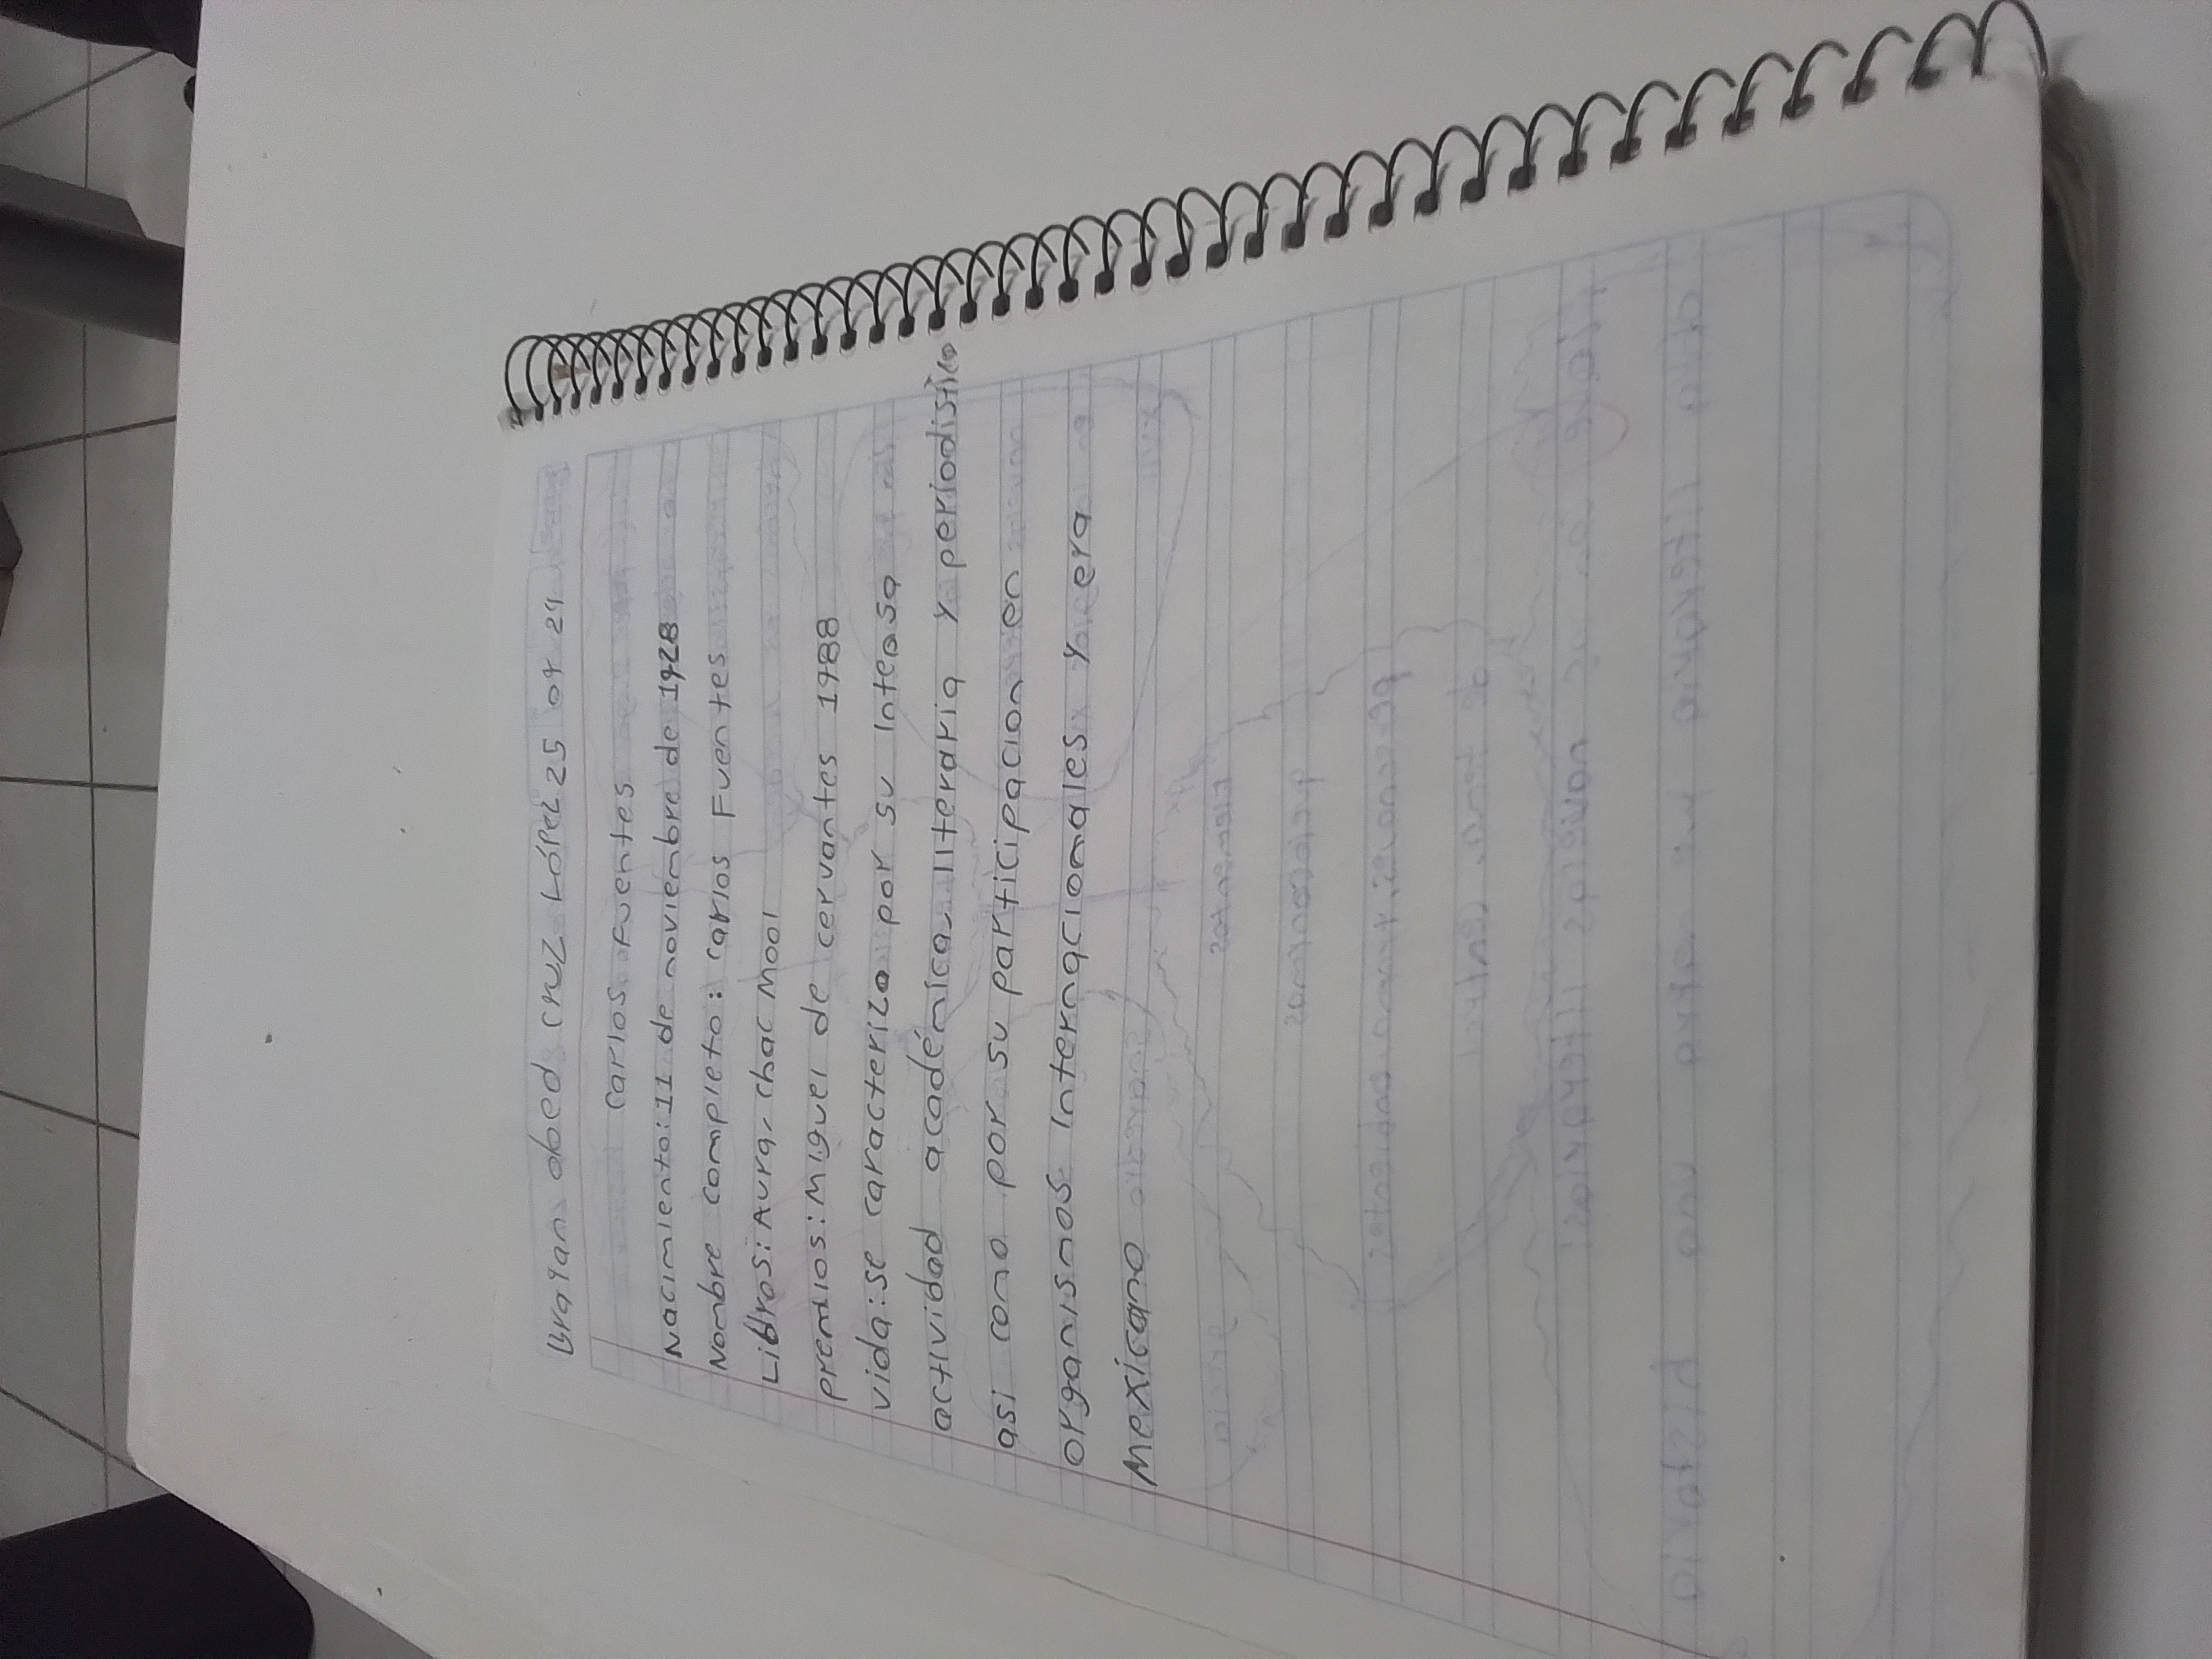 Brayan obed cruz López 25 04 24
Carlos Fuentes
Nacimiento: 11 de noviembre de 1928
Nombre completo: carlos Fuentes
Libros: Aura, chac Mool
premios: Miguel de cervantes 1988
vida: se caracterizo por su intensa
actividad académica, literaria y periodistica
asi como por su participacion en
organismos internacionales y era
Mexicano